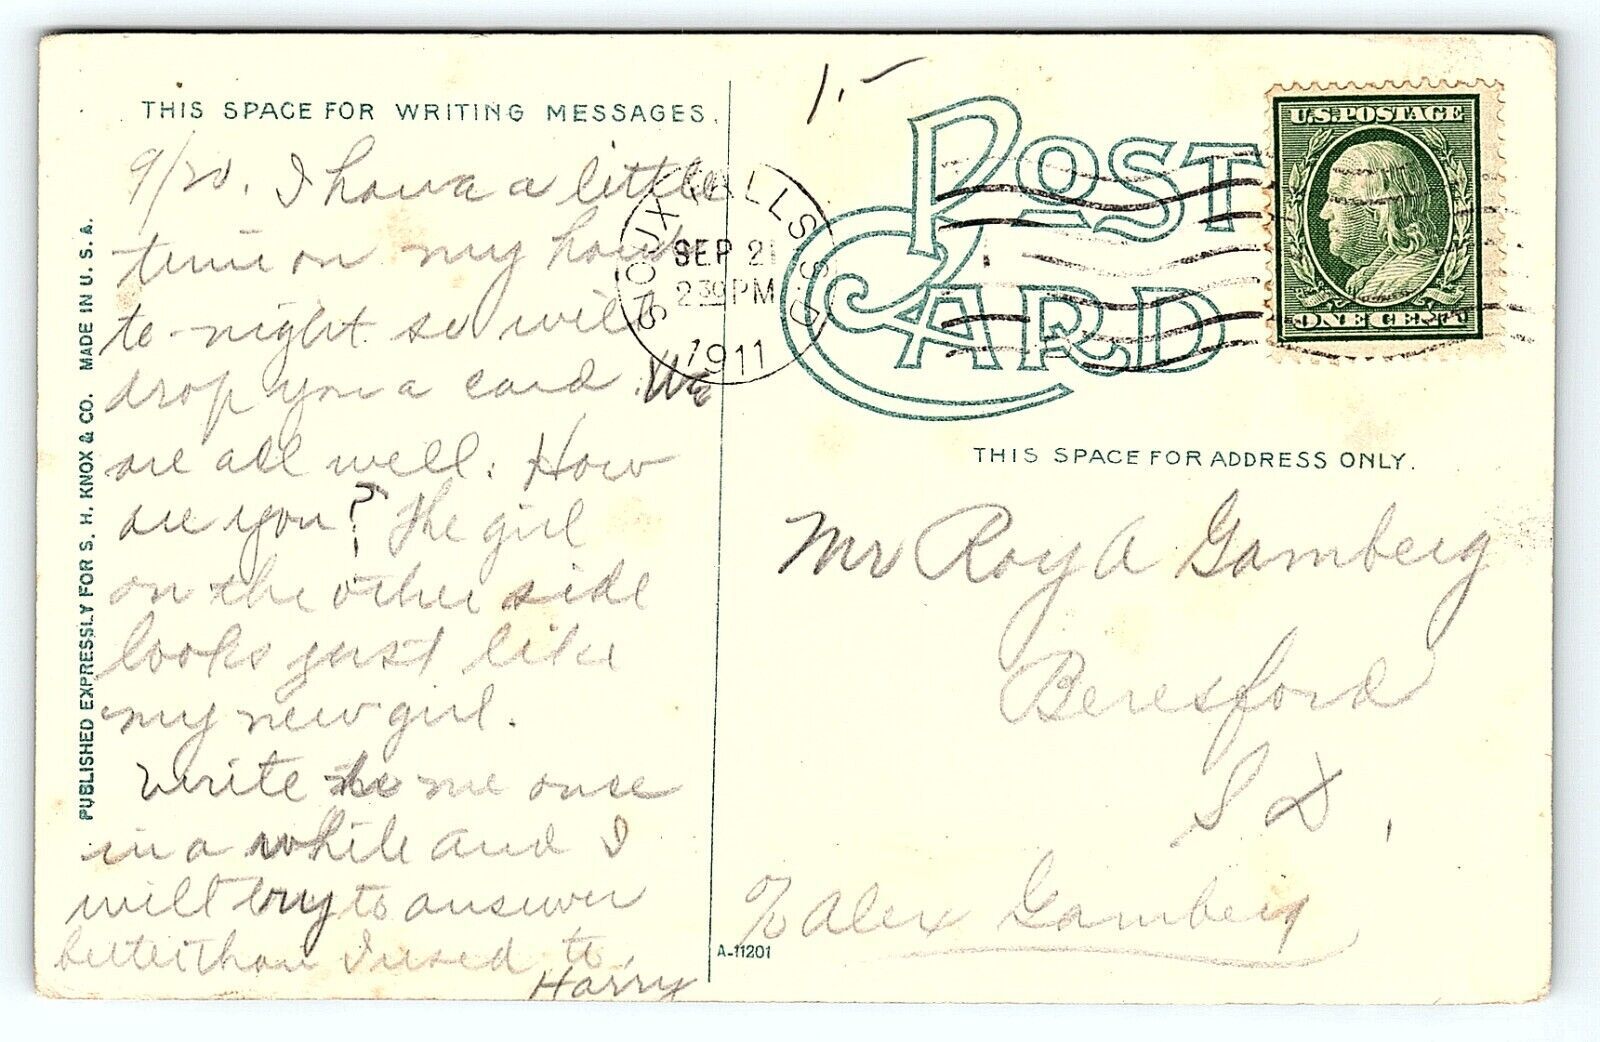 THIS SPACE FOR WRITING MESSAGES.
9/20. I have a little
time on my hands
to-night so will
drop you a card. We
are all well. How
are you? The girl
on the other side
looks just like
my new girl.
Write to me once
in a while and I
will try to answer
better than I used to.
Harry
PUBLISHED EXPRESSLY FOR S. H. KNOX & CO. MADE IN U. S. A.
1.-
POST
CARD
SIOUX FALLS S.D.
SEP 21
2 30 PM
1911
U.S. POSTAGE
ONE CENT
THIS SPACE FOR ADDRESS ONLY.
Mr Roy A Gamberg
Beresford
S D,
c/o Alex Gamberg
A-11201